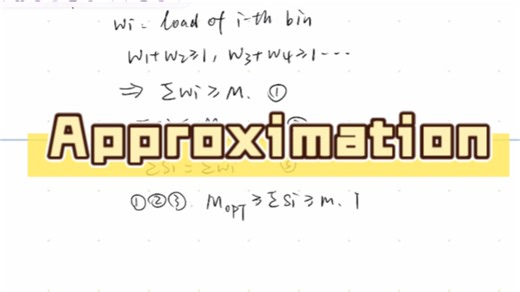 wi = load of i-th bin
w1+w2≥1, w3+w4≥1...
⇒ Σwi ≥ m. ①
Approximation
Σsi = Σwi ③
①②③ Mopt ≥ Σsi ≥ m.